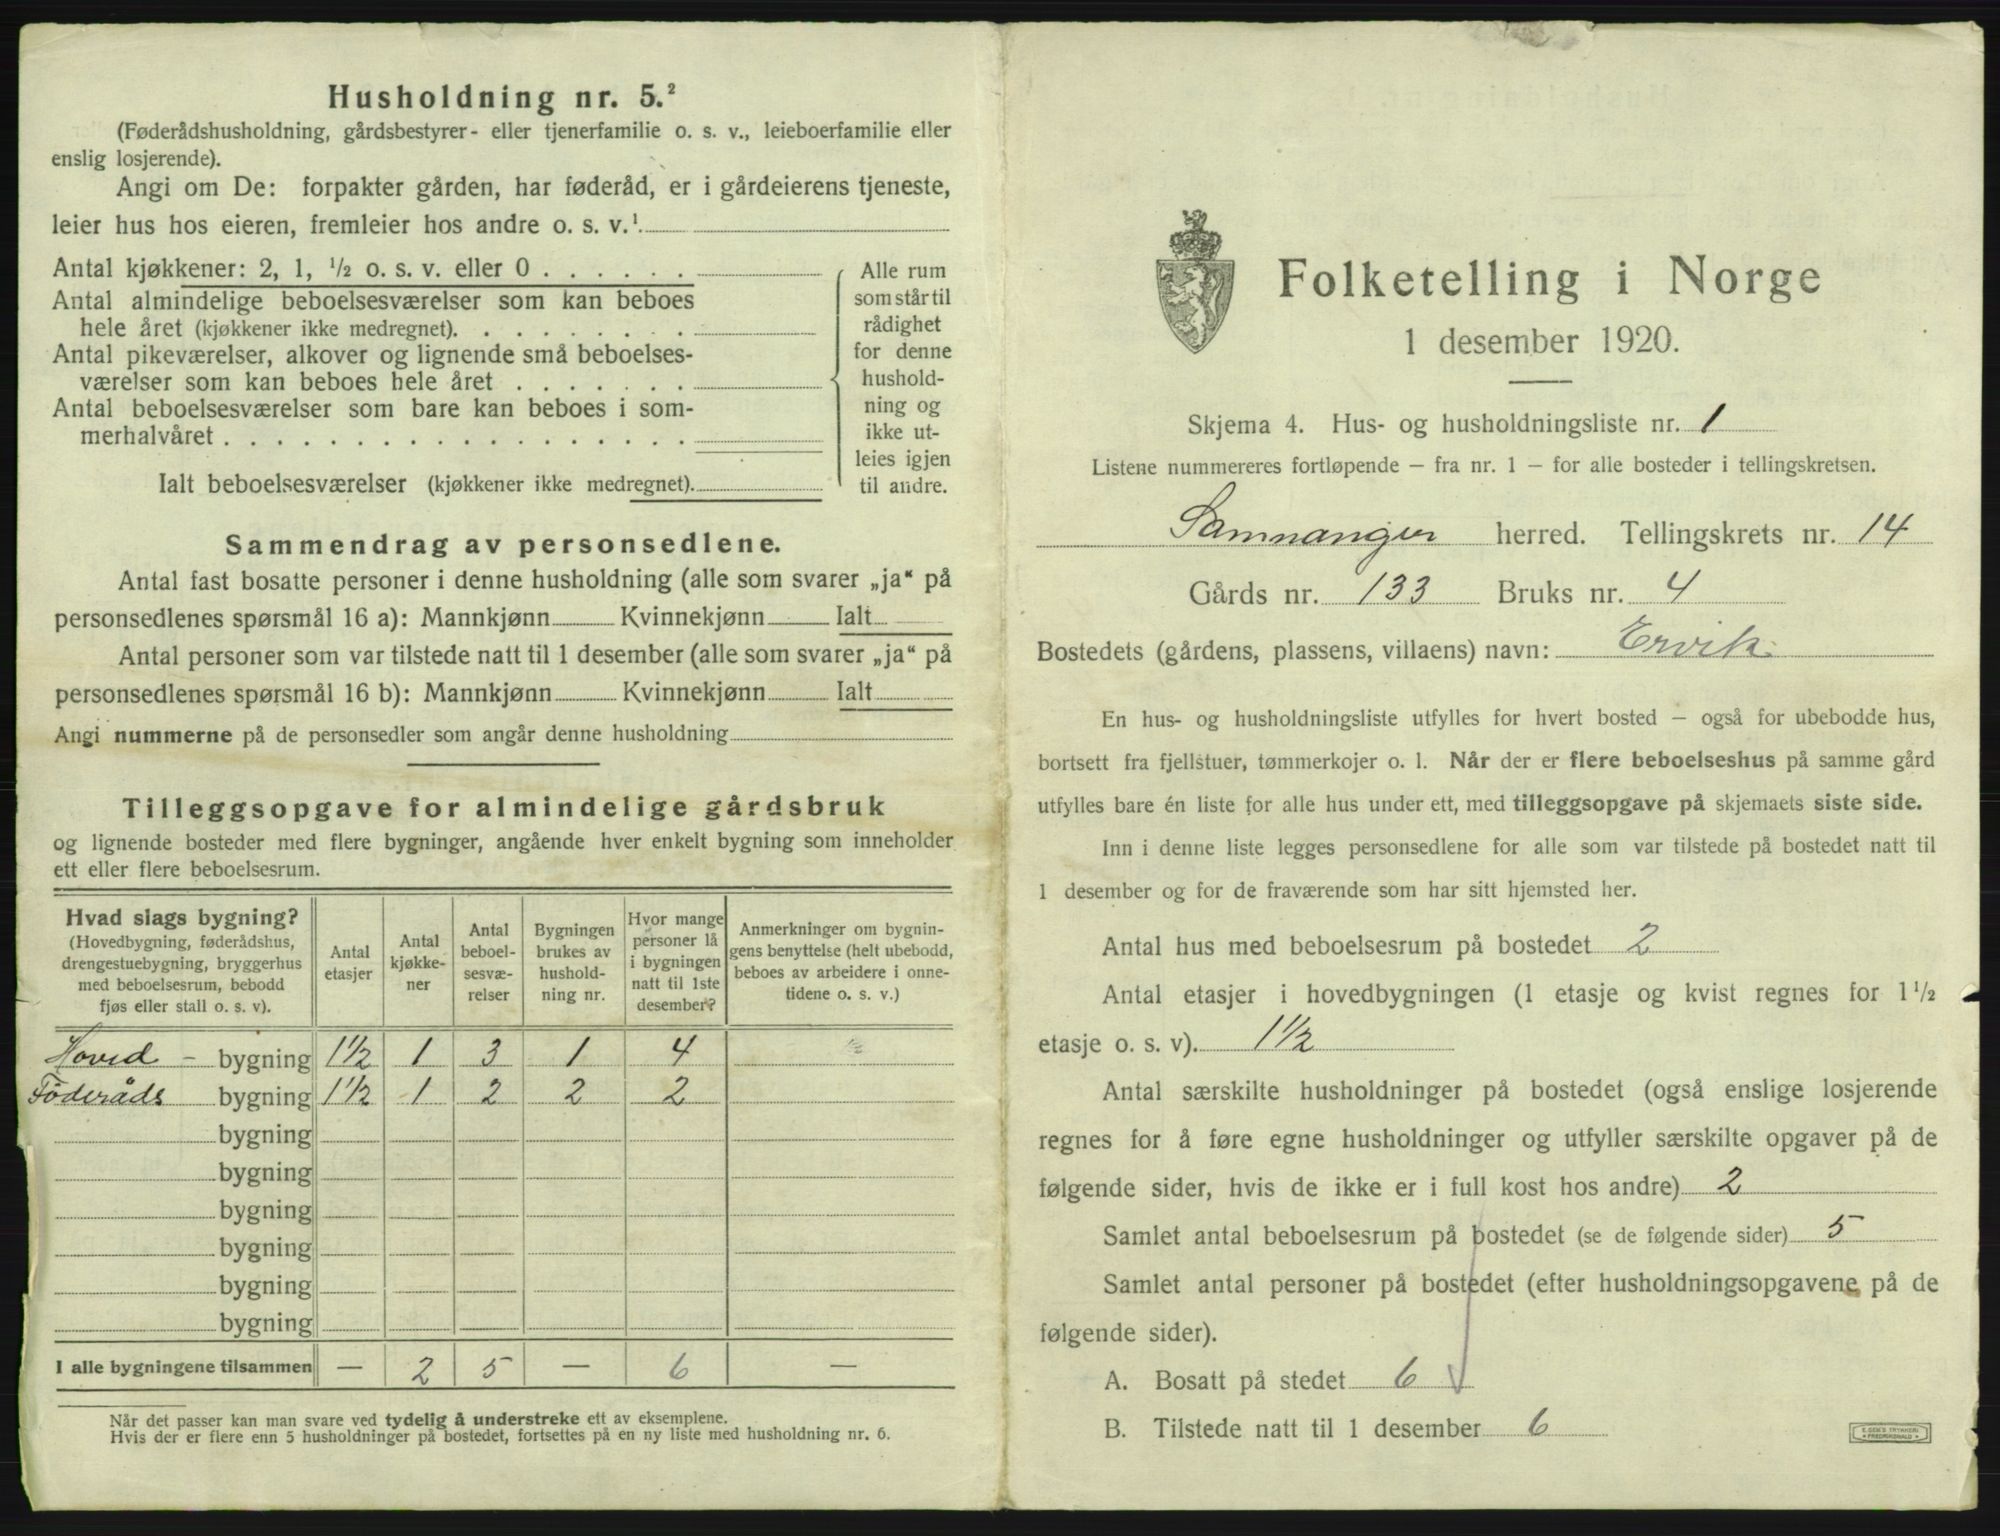 Husholdning nr. 5.²
(Føderådshusholdning, gårdsbestyrer- eller tjenerfamilie o. s. v., leieboerfamilie eller
enslig losjerende).
Angi om De: forpakter gården, har føderåd, er i gårdeierens tjeneste,
leier hus hos eieren, fremleier hos andre o. s. v.¹
Antal kjøkkener: 2, 1, ½ o. s. v. eller 0 . . . . . .
Antal almindelige beboelsesværelser som kan beboes
hele året (kjøkkener ikke medregnet). . . . . . . .
Antal pikeværelser, alkover og lignende små beboelses-
værelser som kan beboes hele året . . . . . . .
Antal beboelsesværelser som bare kan beboes i som-
merhalvåret . . . . . . . . . . . . . . . . .
Ialt beboelsesværelser (kjøkkener ikke medregnet).
Alle rum
som står til
rådighet
for denne
hushold-
ning og
ikke ut-
leies igjen
til andre.
Sammendrag av personsedlene.
Antal fast bosatte personer i denne husholdning (alle som svarer „ja“ på
personsedlenes spørsmål 16 a): Mannkjønn Kvinnekjønn Ialt
Antal personer som var tilstede natt til 1 desember (alle som svarer „ja“ på
personsedlenes spørsmål 16 b): Mannkjønn Kvinnekjønn Ialt
Angi nummerne på de personsedler som angår denne husholdning
Tilleggsopgave for almindelige gårdsbruk
og lignende bosteder med flere bygninger, angående hver enkelt bygning som inneholder
ett eller flere beboelsesrum.
Hvad slags bygning?
(Hovedbygning, føderådshus,
drengestuebygning, bryggerhus
med beboelsesrum, bebodd
fjøs eller stall o. s. v).
Antal
etasjer
Antal
kjøkke-
ner
Antal
beboel-
sesvæ-
relser
Bygningen
brukes av
hushold-
ning nr.
Hvor mange
personer lå
i bygningen
natt til 1ste
desember?
Anmerkninger om bygnin-
gens benyttelse (helt ubebodd,
beboes av arbeidere i onne-
tidene o. s. v.)
Hoved - bygning 1½ 1 3 1 4
Föderåds bygning 1½ 1 2 2 2
bygning
bygning
bygning
bygning
bygning
bygning
I alle bygningene tilsammen — 2 5 — 6 —
Når det passer kan man svare ved tydelig å understreke ett av eksemplene.
Hvis der er flere enn 5 husholdninger på bostedet, fortsettes på en ny liste med husholdning nr. 6.
Folketelling i Norge
1 desember 1920.
Skjema 4. Hus- og husholdningsliste nr. 1
Listene nummereres fortløpende — fra nr. 1 — for alle bosteder i tellingskretsen.
Samnanger herred. Tellingskrets nr. 14
Gårds nr. 133 Bruks nr. 4
Bostedets (gårdens, plassens, villaens) navn: Ervik
En hus- og husholdningsliste utfylles for hvert bosted — også for ubebodde hus,
bortsett fra fjellstuer, tømmerkojer o. l. Når der er flere beboelseshus på samme gård
utfylles bare én liste for alle hus under ett, med tilleggsopgave på skjemaets siste side.
Inn i denne liste legges personsedlene for alle som var tilstede på bostedet natt til
1 desember og for de fraværende som har sitt hjemsted her.
Antal hus med beboelsesrum på bostedet 2
Antal etasjer i hovedbygningen (1 etasje og kvist regnes for 1½
etasje o. s. v). 1½
Antal særskilte husholdninger på bostedet (også enslige losjerende
regnes for å føre egne husholdninger og utfyller særskilte opgaver på de
følgende sider, hvis de ikke er i full kost hos andre) 2
Samlet antal beboelsesrum på bostedet (se de følgende sider) 5
Samlet antal personer på bostedet (efter husholdningsopgavene på de
følgende sider).
A. Bosatt på stedet 6
B. Tilstede natt til 1 desember 6